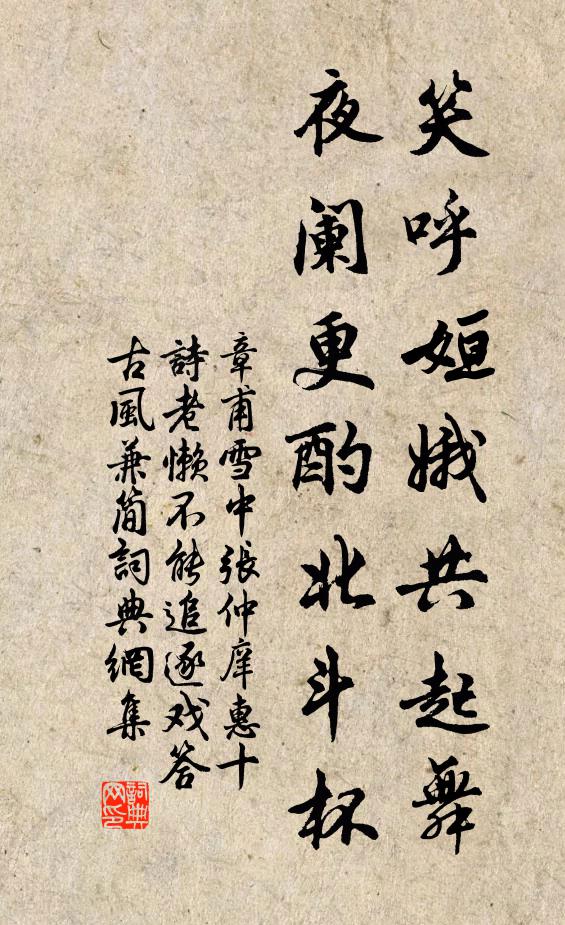 笑呼姮娥共起舞
夜阑更酌北斗杯
章甫雪中張仲庠惠十
詩老懒不能追逐戏答
古風兼简詞典網集
詞典网印